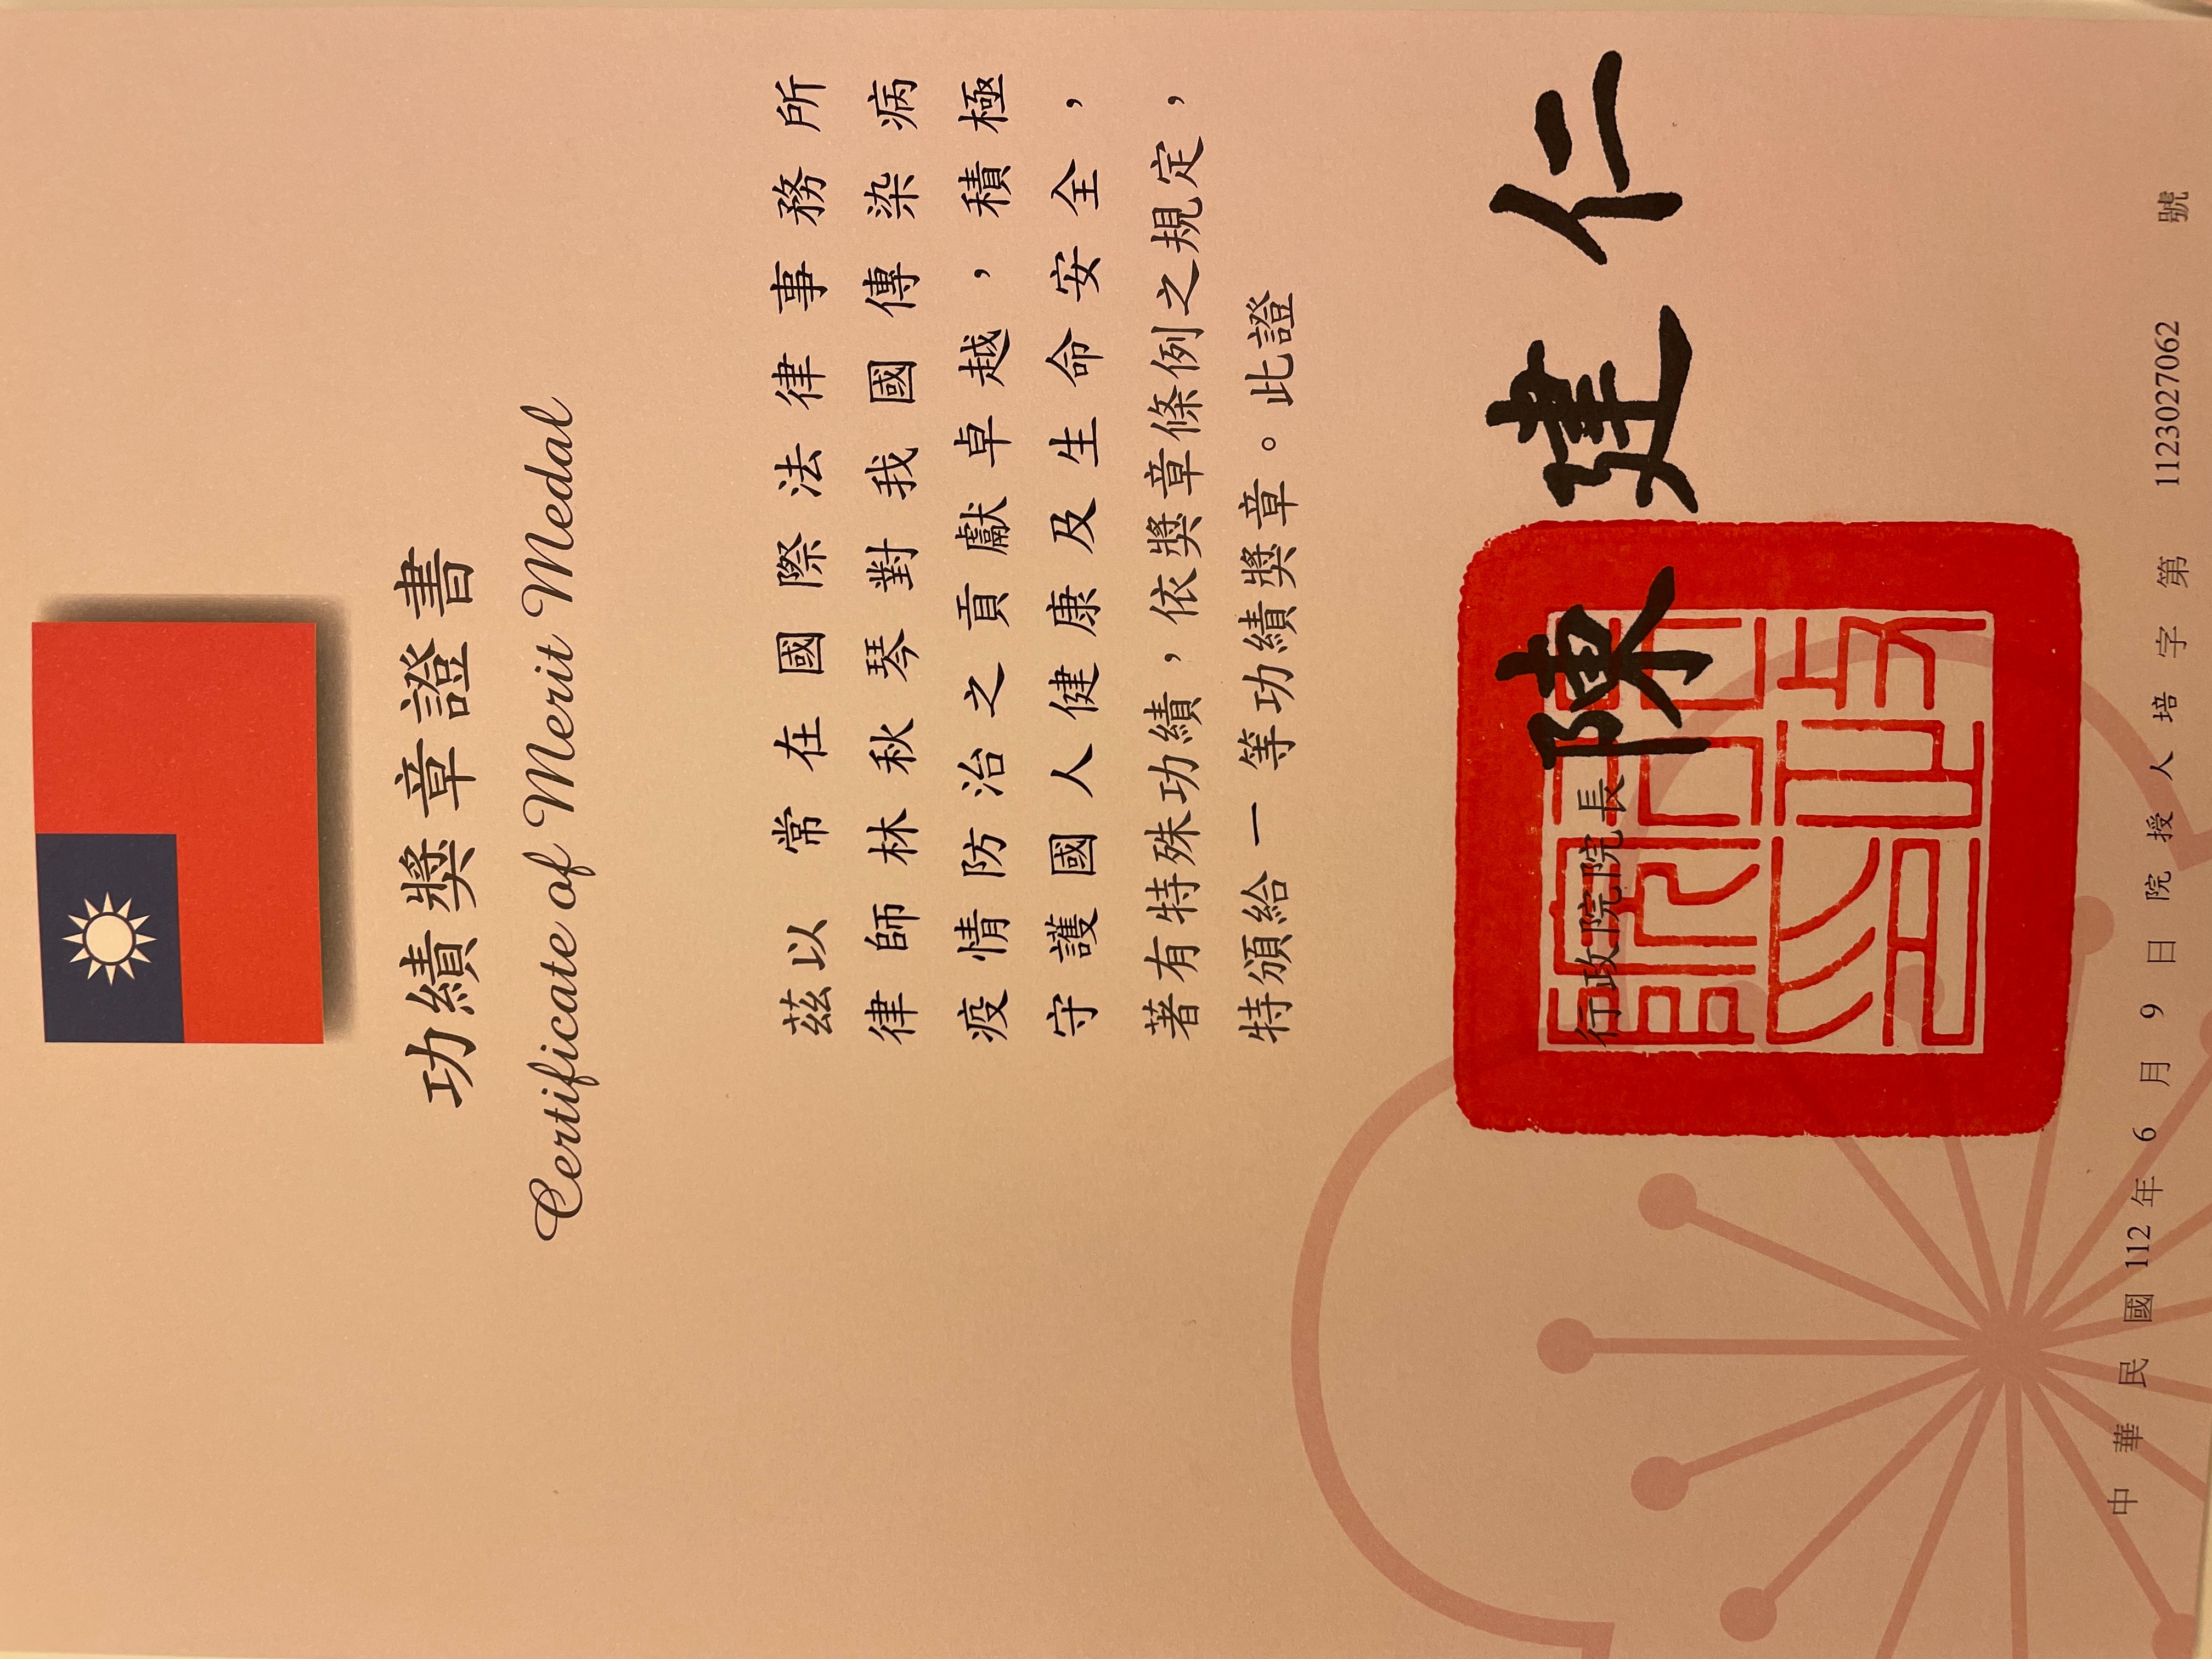 功績獎章證書
Certificate of Merit Medal
茲以 常在國際法律事務所
律師林秋琴對我國傳染病
疫情防治之貢獻卓越，積極
守護國人健康及生命安全，
著有特殊功績，依獎章條例之規定，
特頒給一等功績獎章。此證
行政院院長 陳建仁
行政院印
中華民國 112 年 6 月 9 日 院授人培字第 1123027062 號